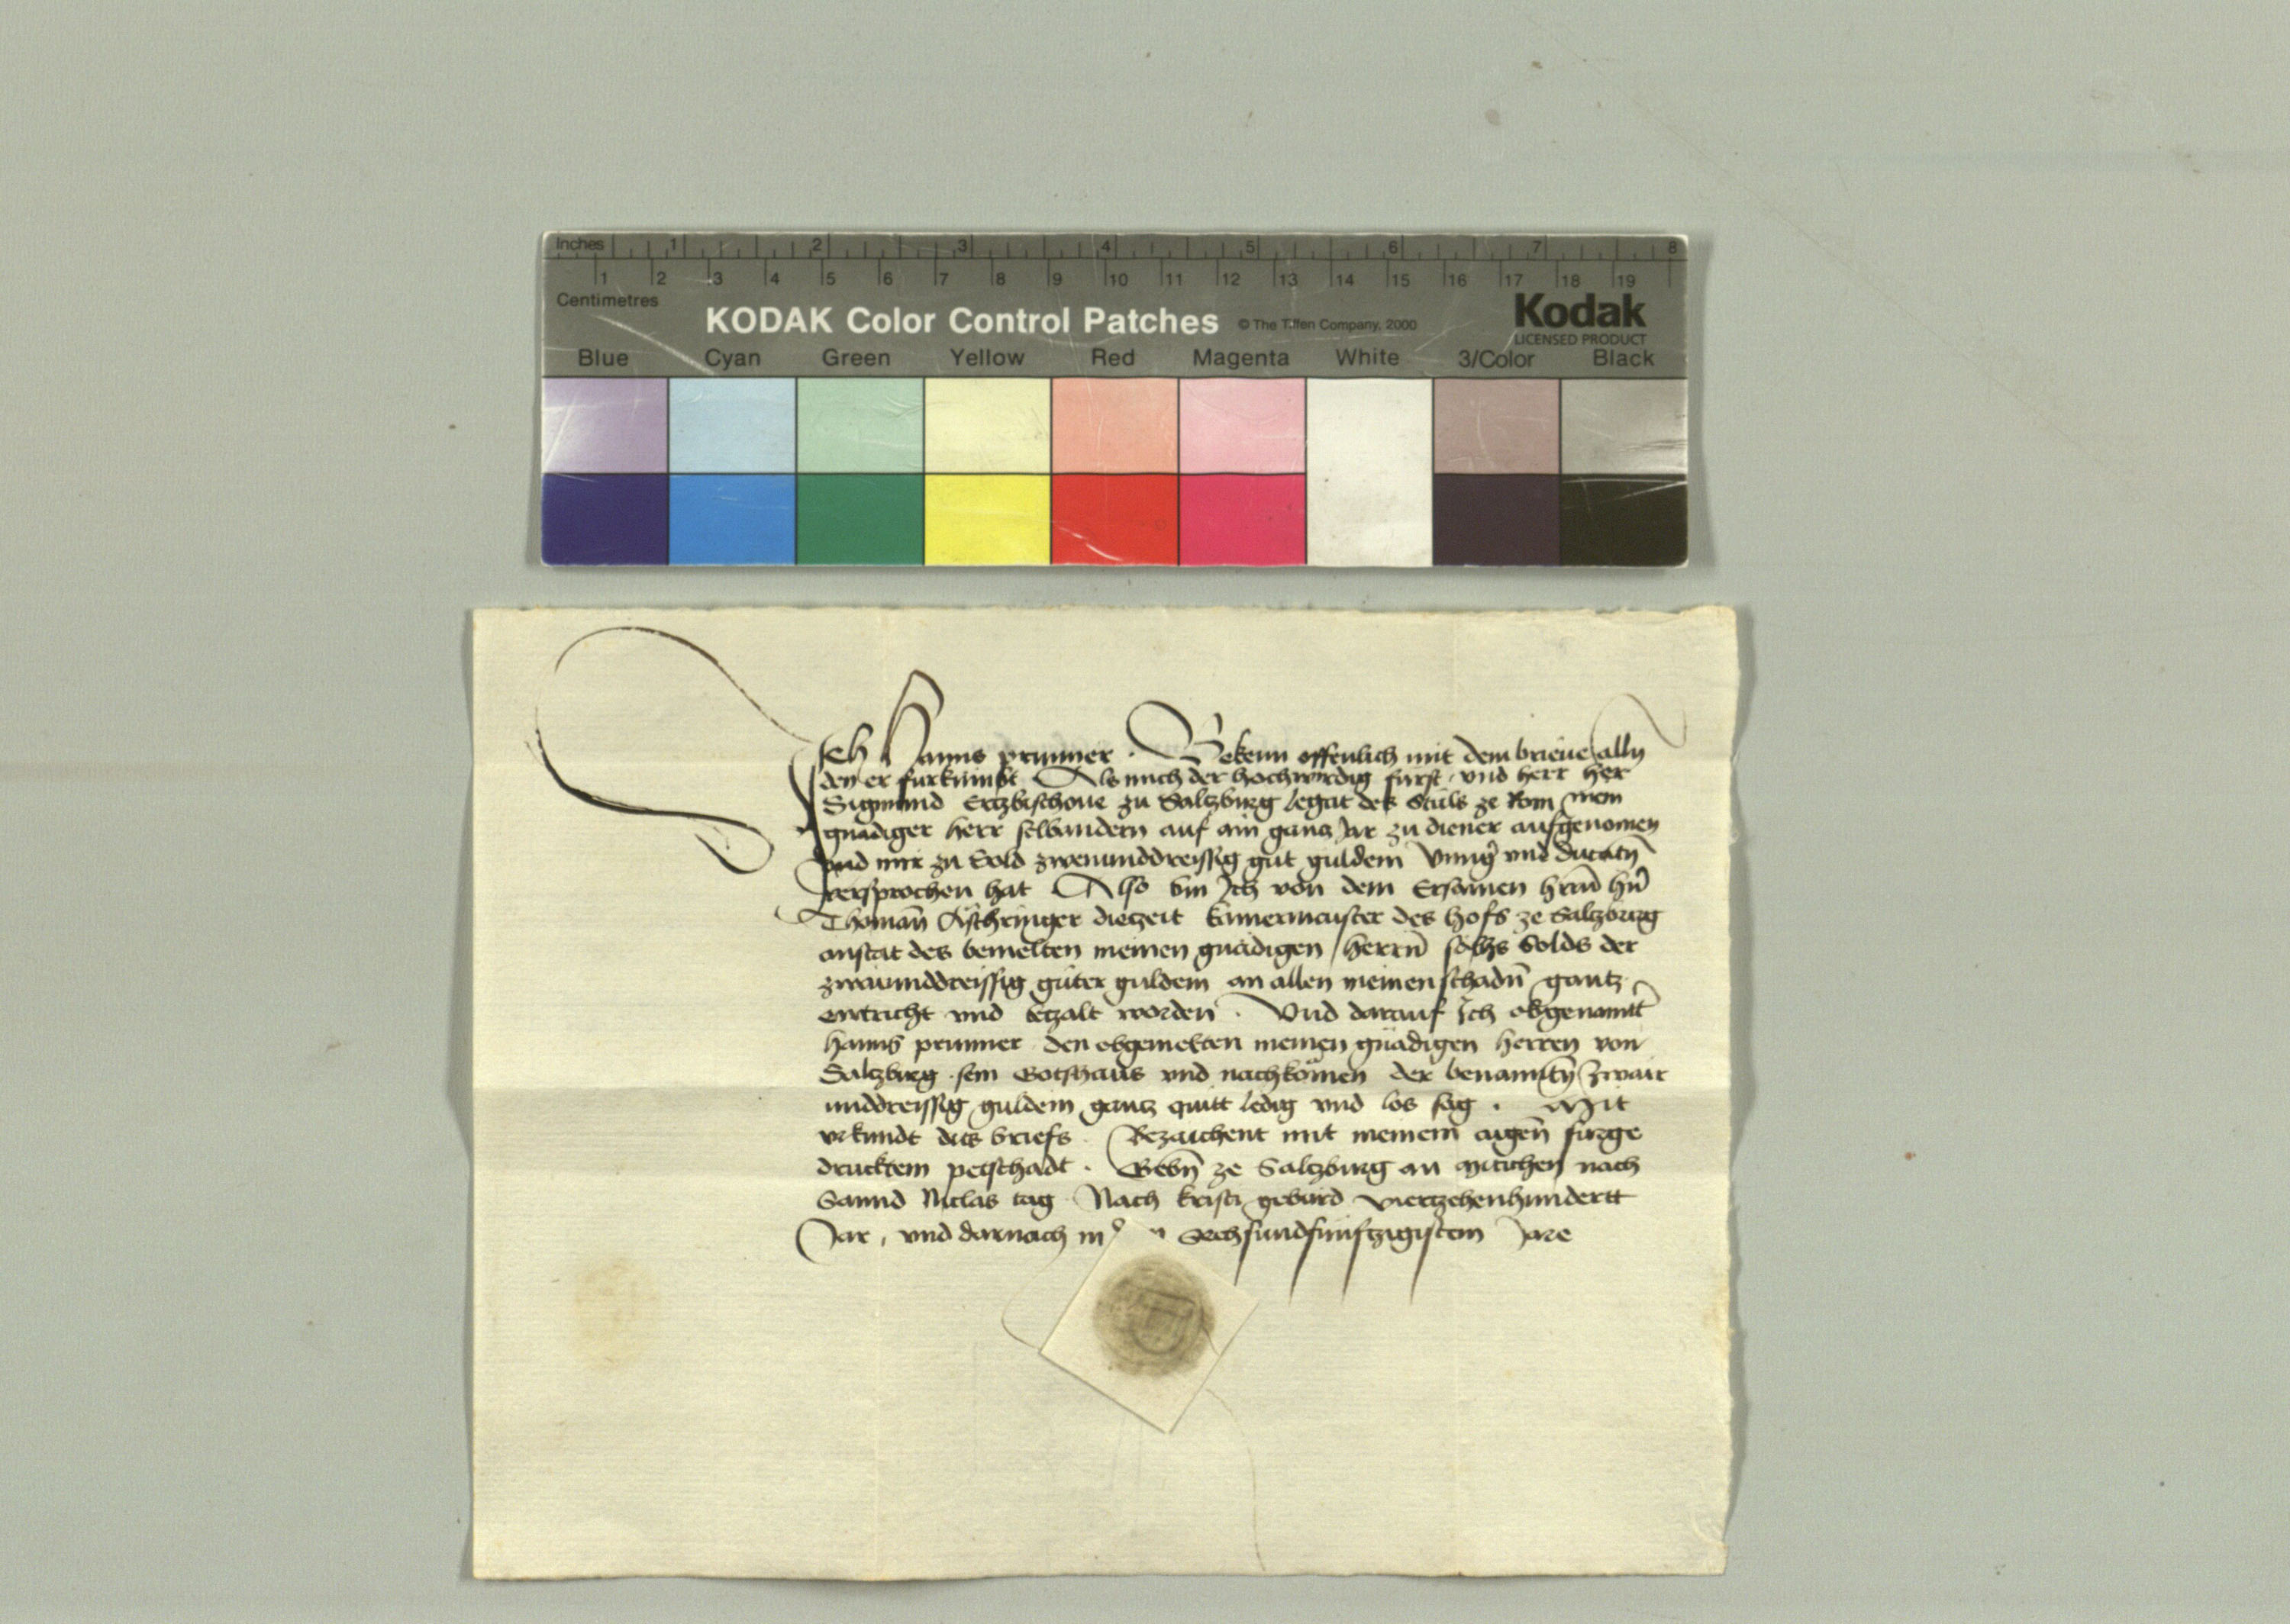 Inches 1 2 3 4 5 6 7 8
1 2 3 4 5 6 7 8 9 10 11 12 13 14 15 16 17 18 19
Centimetres
KODAK Color Control Patches © The Tiffen Company, 2000 Kodak
LICENSED PRODUCT
Blue Cyan Green Yellow Red Magenta White 3/Color Black
Ich Hanns prunner . Bekenn offenlich mit dem brieue alln
den er furkumbt Als mich der hochwirdig furst und herr her
Sigmund Ertzbischoue zu Saltzburg legat des Stuls ze Rom mein
gnädiger herr selbandern auf ain gantz Jar zu diener aufgenomen
und mir zu Sold zwenunddreissig gut guldein Vnngr und ducatn
versprochen hat Also bin Ich von dem Ersamen hern hern
Thoman Äschringer dietzeit kamermaister des hofs ze Saltzburg
anstat des bemelten meinen gnädigen herrn solhs Solds der
zwaiunddreissig guter guldein an allen meinen schadn gantz
entricht vnd betzalt worden . Vnd darauf Ich obgenannt
hanns prunner den obgemelten meinen gnädigen herren von
Saltzburg sein Gotshaus vnd nachkomen der benanntn zwair
unddreissig guldein gantz quitt ledig vnd los sag . Mit
vrkundt dits briefs . Bezaichent mit meinem aigen furge
drucktem petschadt . Gebn ze Saltzburg an Mitichen nach
Sannd Niclas tag Nach kristi geburd viertzehenhundertt
Jar , vnd darnach in Sechsundfunftzigistem Jare